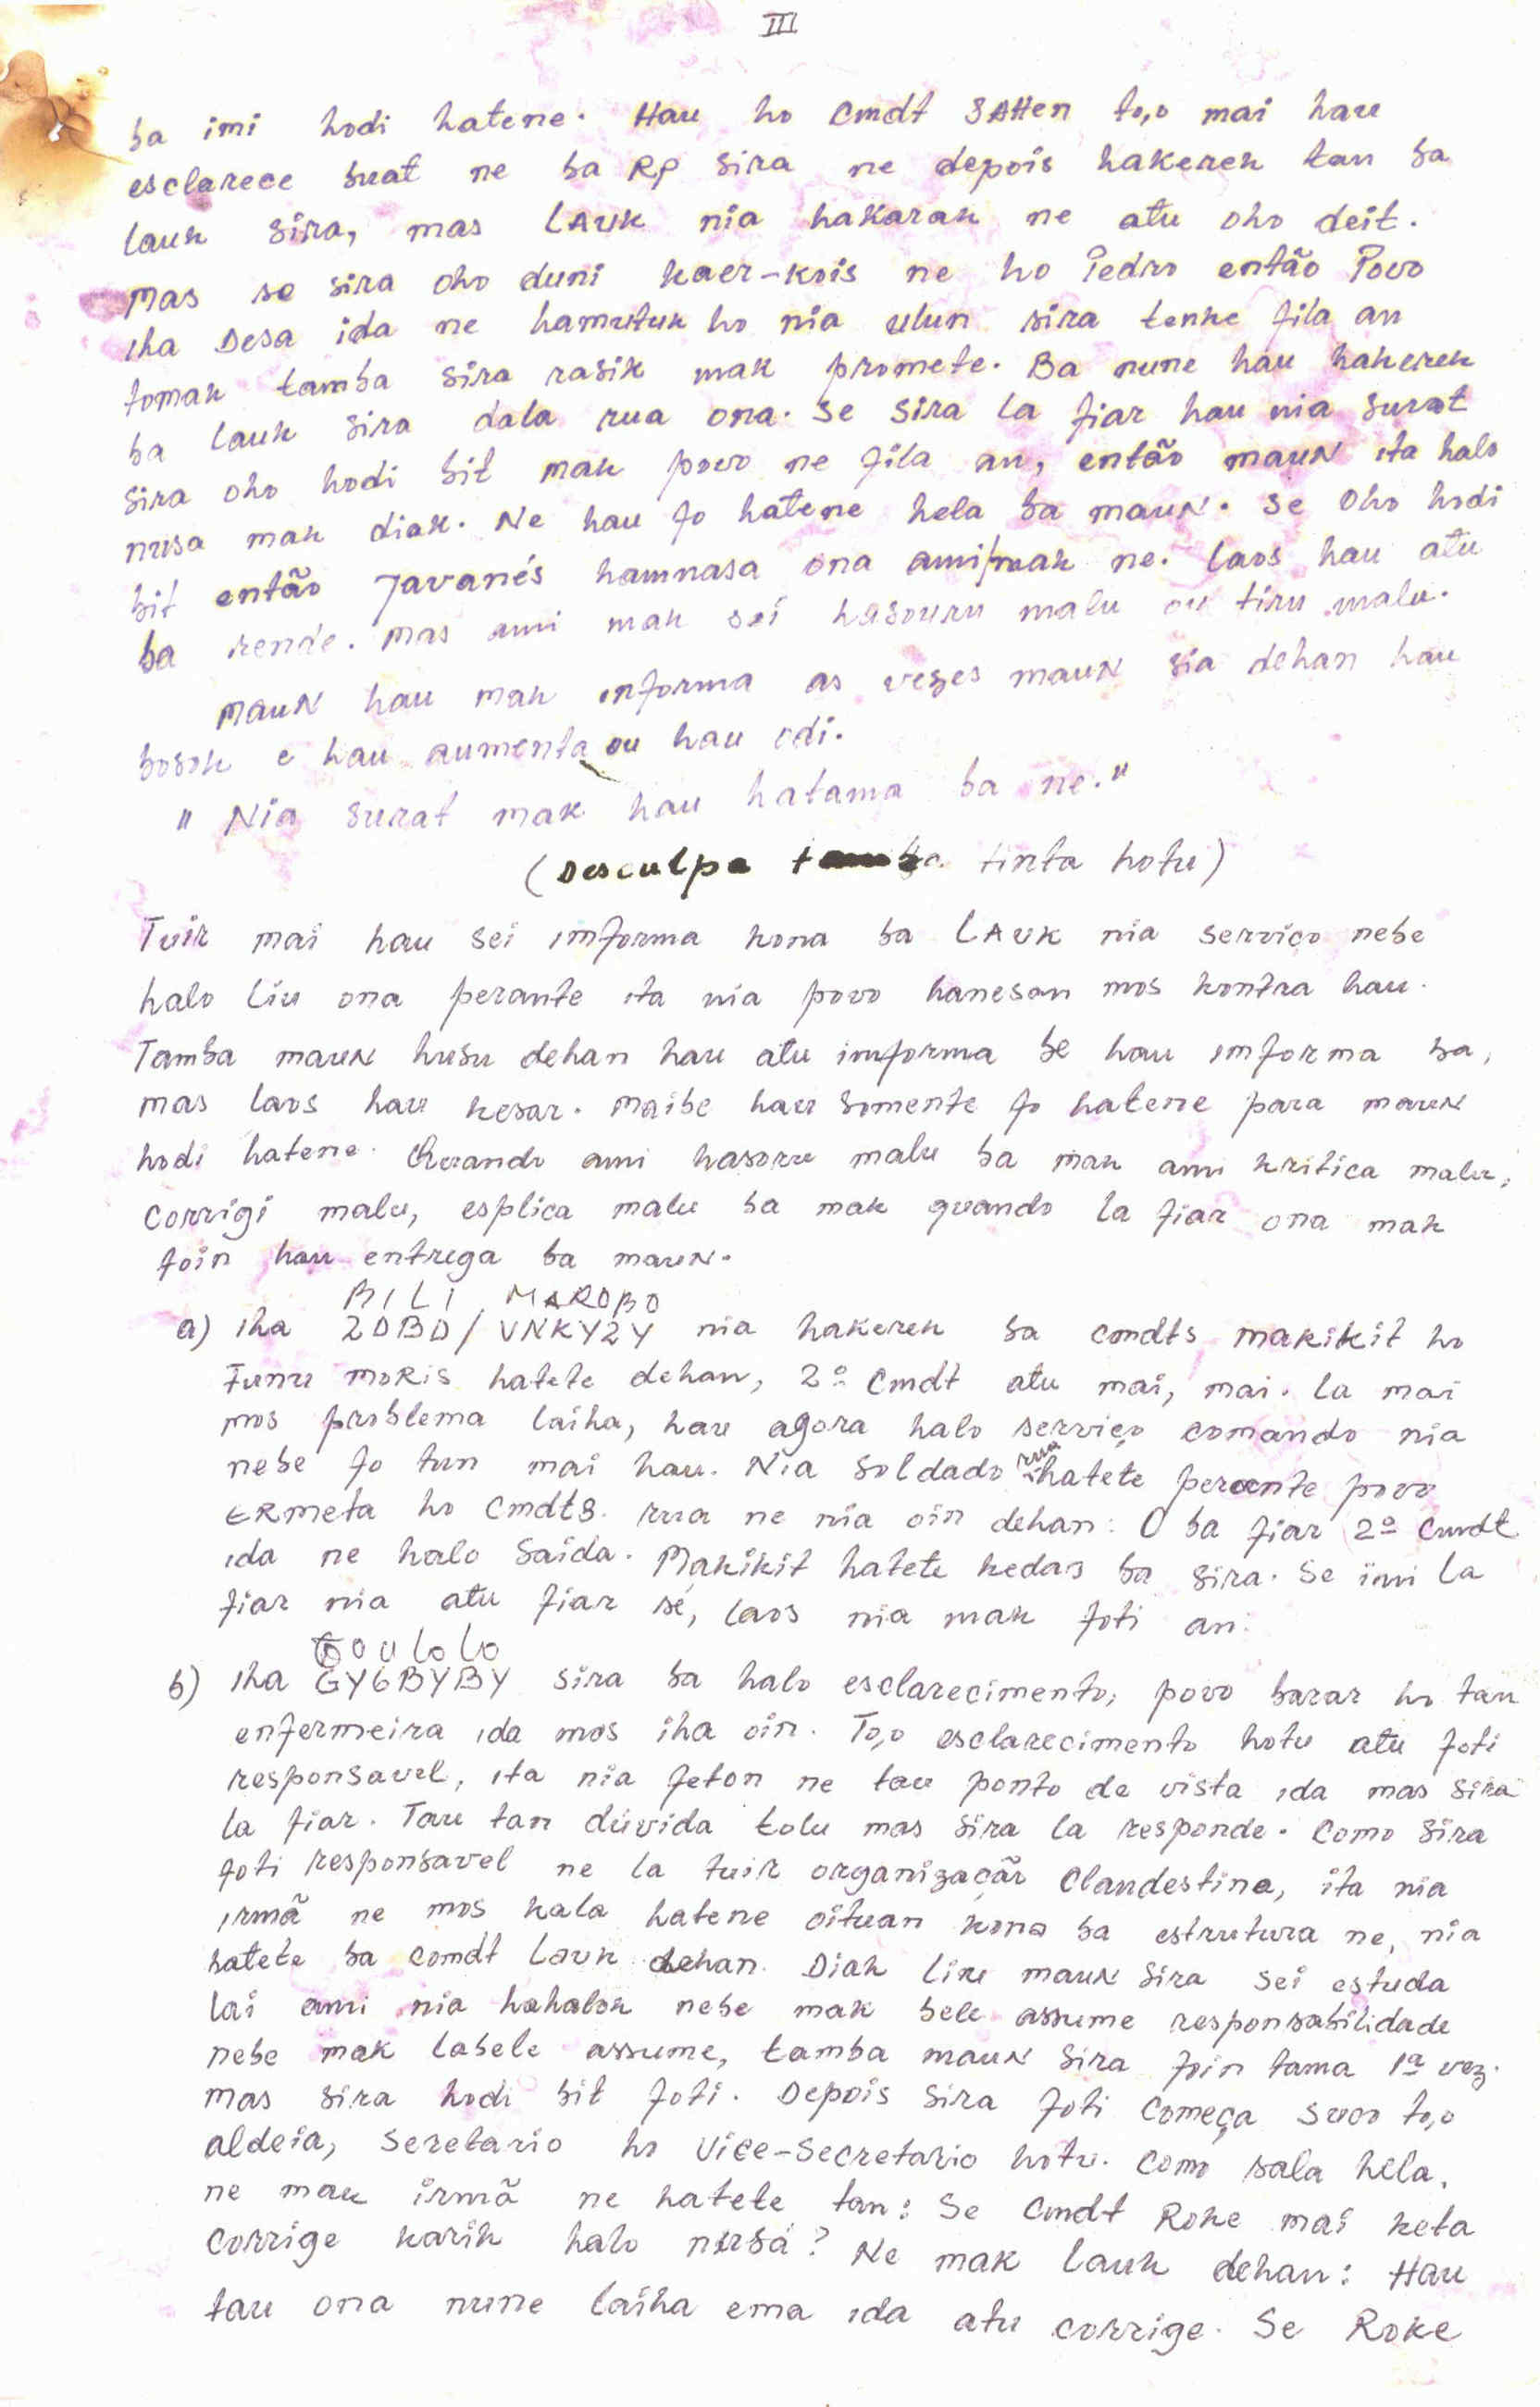 III
ba imi hodi hatene. Hau ho Cmdt SAHen to,o mai hau
esclarece surat ne ba RP sira ne depois hakerek tan ba
lauk sira, mas LAUK nia hakarak ne atu oho deit.
Mas se sira oho duni kaer-kois ne ho Pedro então Povo
iha Desa ida ne hamutuk ho nia ulun sira tenke fila an
tomak tamba sira rasik mak promete. Ba nune hau hakerek
ba lauk sira dala rua ona. Se sira la fiar hau nia surat
sira oho hodi bit mak povo ne fila an, então mauN ita halo
nusa mak diak. Ne hau fo hatene hela ba mauN. Se oho hodi
bit então Javanés hamnasa ona ami mak ne. Laos hau atu
ba rende. Mas ami mak sei hasouru malu ou tiru malu.
MauN hau mak informa as vezes mauN sia dehan hau
bosok e hau aumenta ou hau odi.
" Nia surat mak hau hatama ba ne."
(Desculpa tamba tinta hotu)
Tuir mai hau sei imforma kona ba LAUK nia serviço nebe
halo liu ona perante ita nia povo hanesan mos kontra hau.
Tamba mauN husu dehan hau atu imforma be hau imforma ba,
mas laos hau kesar. Maibe hau somente fo hatene para mauN
hodi hatene. Quando ami hasoru malu ba mak ami kritica malu,
corrigi malu, esplica malu ba mak quando la fiar ona mak
foin hau entrega ba mauN.
BILI MAROBO
a) iha ZOBO/VNKY2Y nia hakerek ba comdts makikit ho
Funu moRis hatete dehan, 2º Cmdt atu mai, mai. la mai
mos problema laiha, hau agora halo serviço comando nia
nebe fo tun mai hau. Nia soldado rua hatete perante povo
ERmeta ho Cmdts. rua ne nia oin dehan: O ba fiar 2º Cmdt
ida ne halo saida. Makikit hatete kedas ba sira. Se imi la
fiar nia atu fiar sé, laos nia mak foti an.
Goulolo
b) iha GY6BYBY sira ba halo esclarecimento, povo barar ho tan
enfermeira ida mos iha oin. To,o esclarecimento hotu atu foti
responsavel, ita nia feton ne tau ponto de vista ida mas sira
la fiar. Tau tan dúvida tolu mas sira la responde. Como sira
foti responsavel ne la tuir organizaçãr Clandestina, ita nia
irmã ne mos kala hatene oituan kona ba estrutura ne, nia
hatete ba comdt Lauk dehan. Diak liu mauN sira sei estuda
lai ami nia hahalok nebe mak bele assume responsabilidade
nebe mak labele assume, tamba mauN sira foin tama 1ª vez.
Mas sira hodi bit foti. Depois sira foti começa suco to,o
aldeia, seretario ho Vice-Secretario hotu. Como sala hela,
ne mak irmã ne hatete tan: Se Cmdt Roke mai keta
corrige karik halo nusá? Ne mak lauk dehan: Hau
tau ona nune laiha ema ida atu corrige. Se Roke